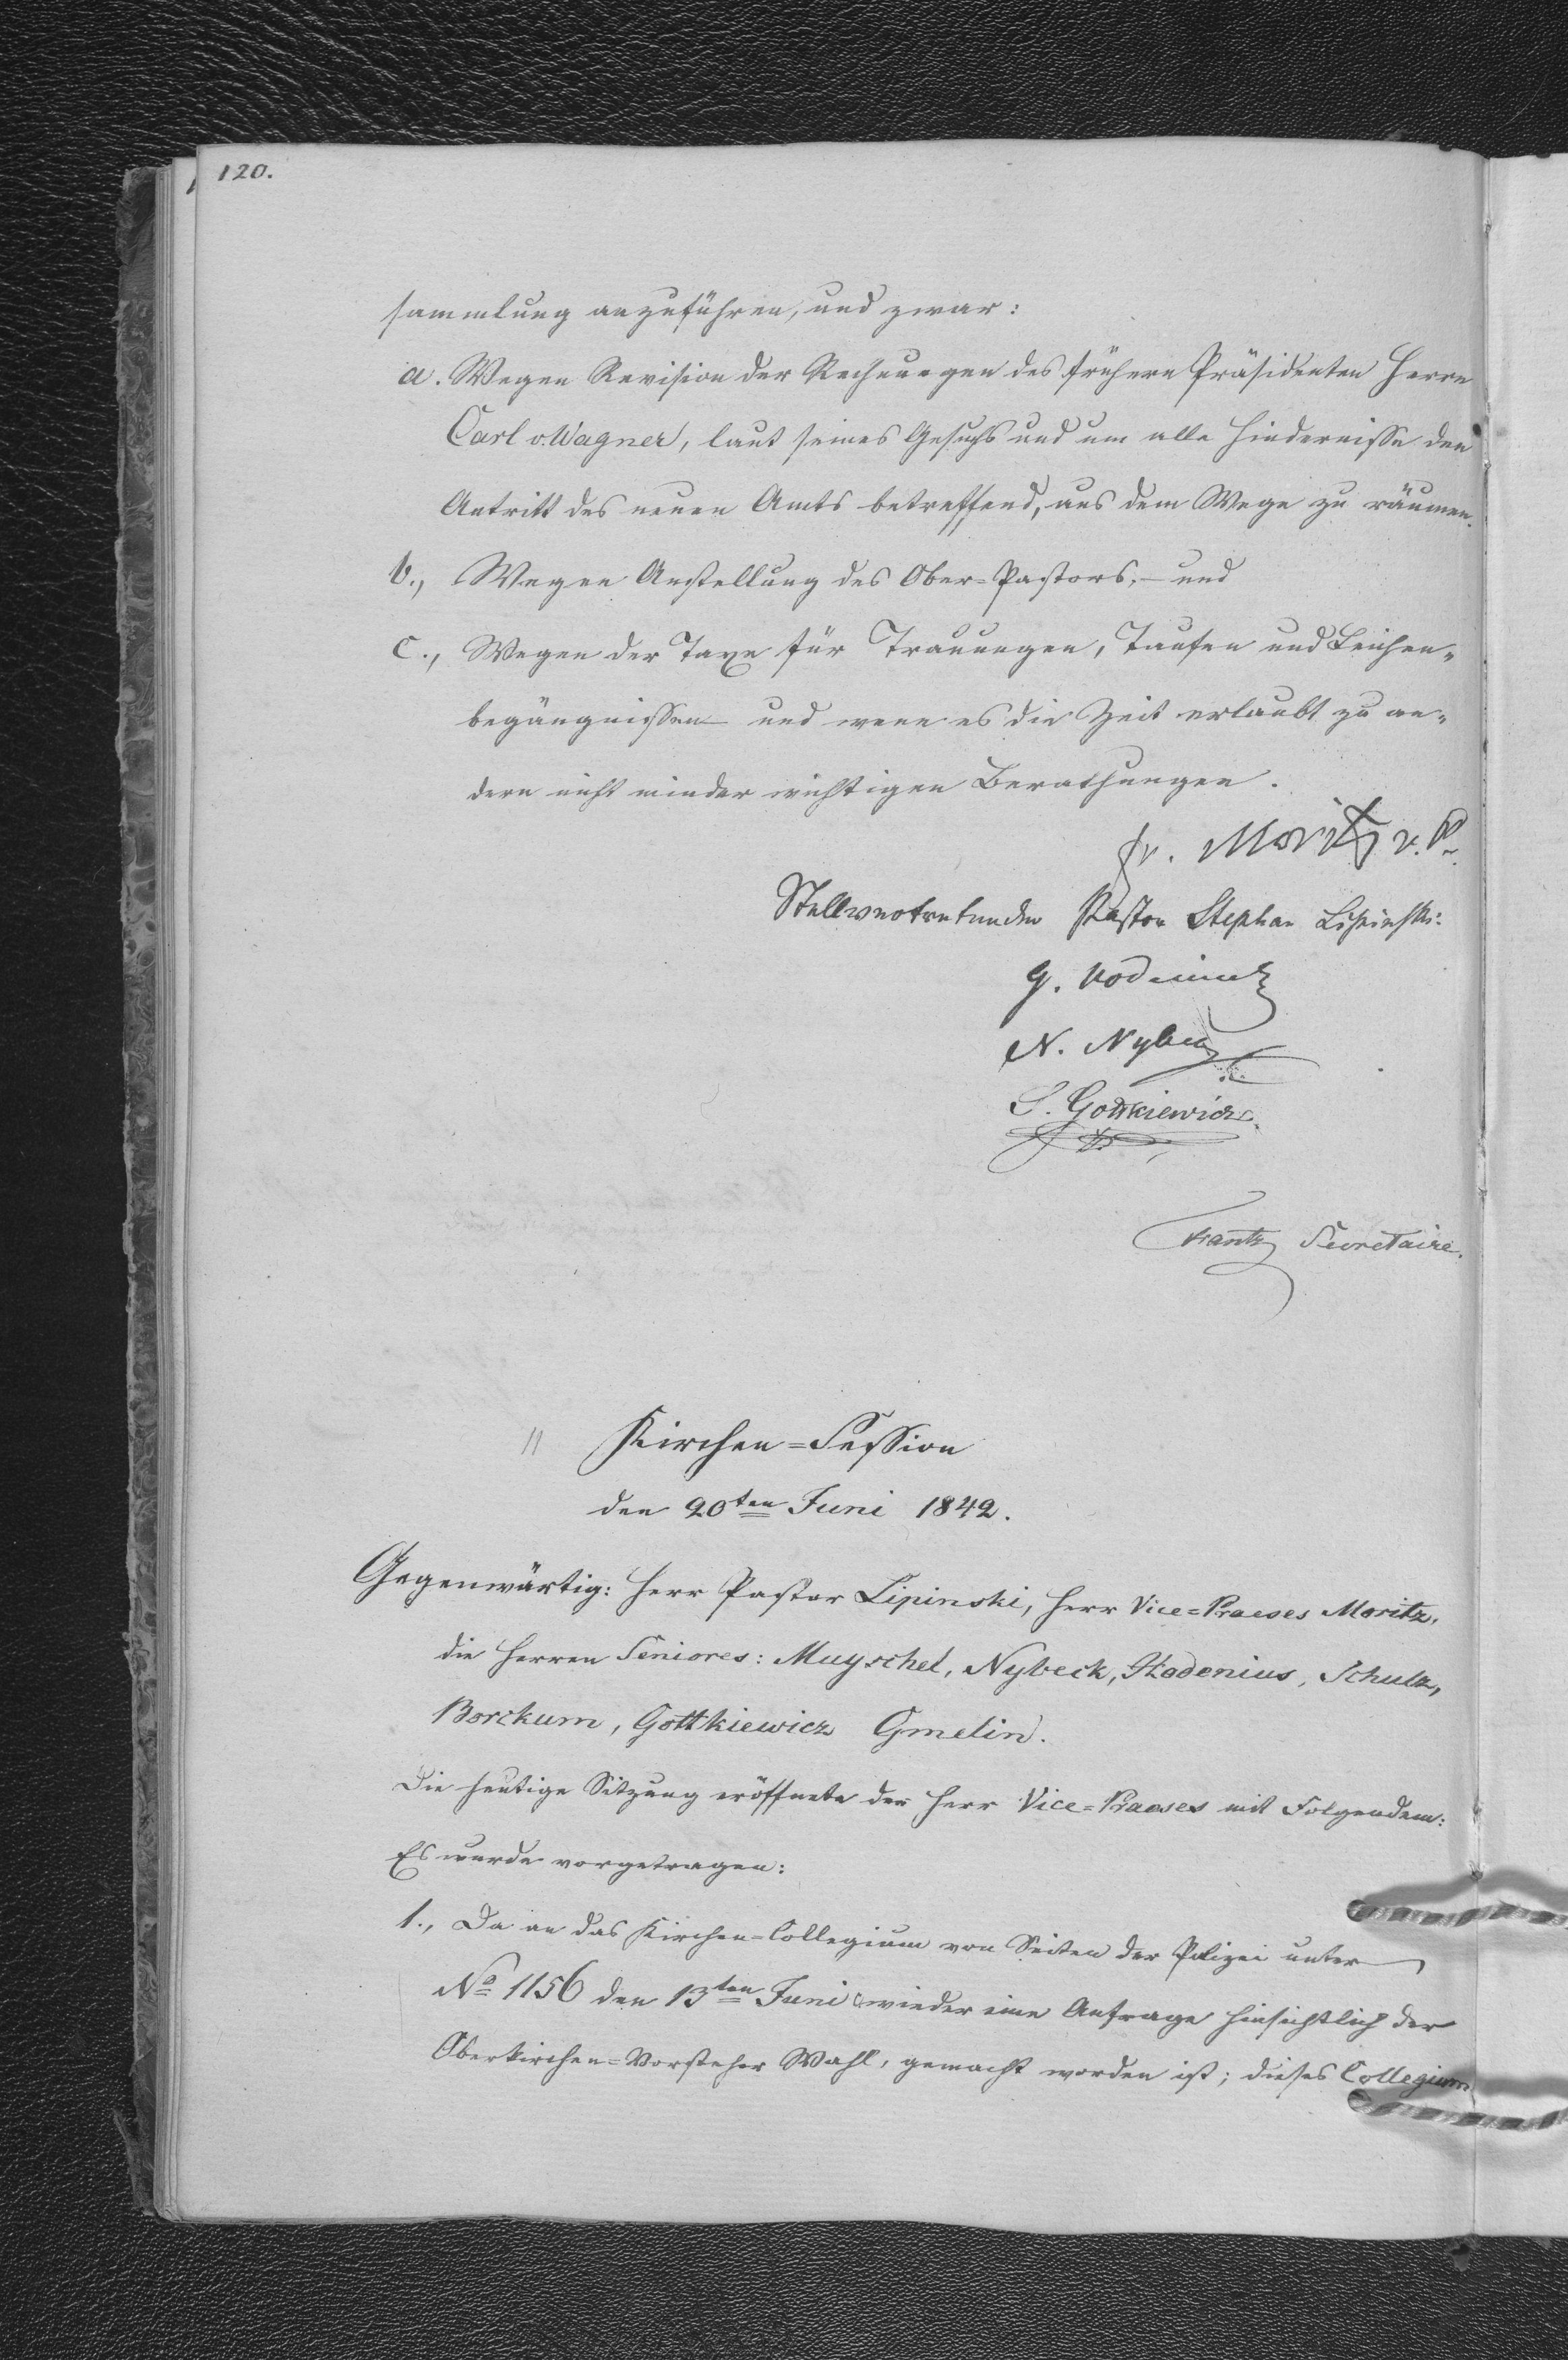 120.
sammlung anzuführen, und zwar:
a. Wegen Revision der Rechnungen des frühern Präsidenten Herrn
Carl v. Wagner, laut seines Gesuchs und um alle Hindernisse den
Antritt des neuen Amts betreffend, aus dem Wege zu räumen.
b., Wegen Anstellung des Ober-Pastors, – und
c., Wegen der Taxe für Trauungen, Taufen und Leichen„
begängnissen – und wenn es die Zeit erlaubt zu an„
dern nicht minder wichtigen Berathungen.
Fr. Moritz v. P.
Stellvertretender Pastor Stephan Lipinski:
G.
N. Nybeck
S. Gottkiewicz.
Frantz Secretaire.
11 Kirchen=Session
den 20ten Juni 1842.
Gegenwärtig: Herr Pastor Lipinski, Herr Vice=Praeses Moritz,
die Herren Seniores: Muyschel, Nybeck, Kodenius, Schulz,
Borckum, Gottkiewicz Gmelin.
Die heutige Sitzung eröffnete der Herr Vice=Praeses mit Folgendem:
Es wurde vorgetragen:
1., Da an das Kirchen=Collegium von Seiten der Polizei unter
No 1156 den 13ten Juni wieder eine Anfrage hinsichtlich der
Oberkirchen=Vorsteher Wahl, gemacht worden ist; dieses Collegium